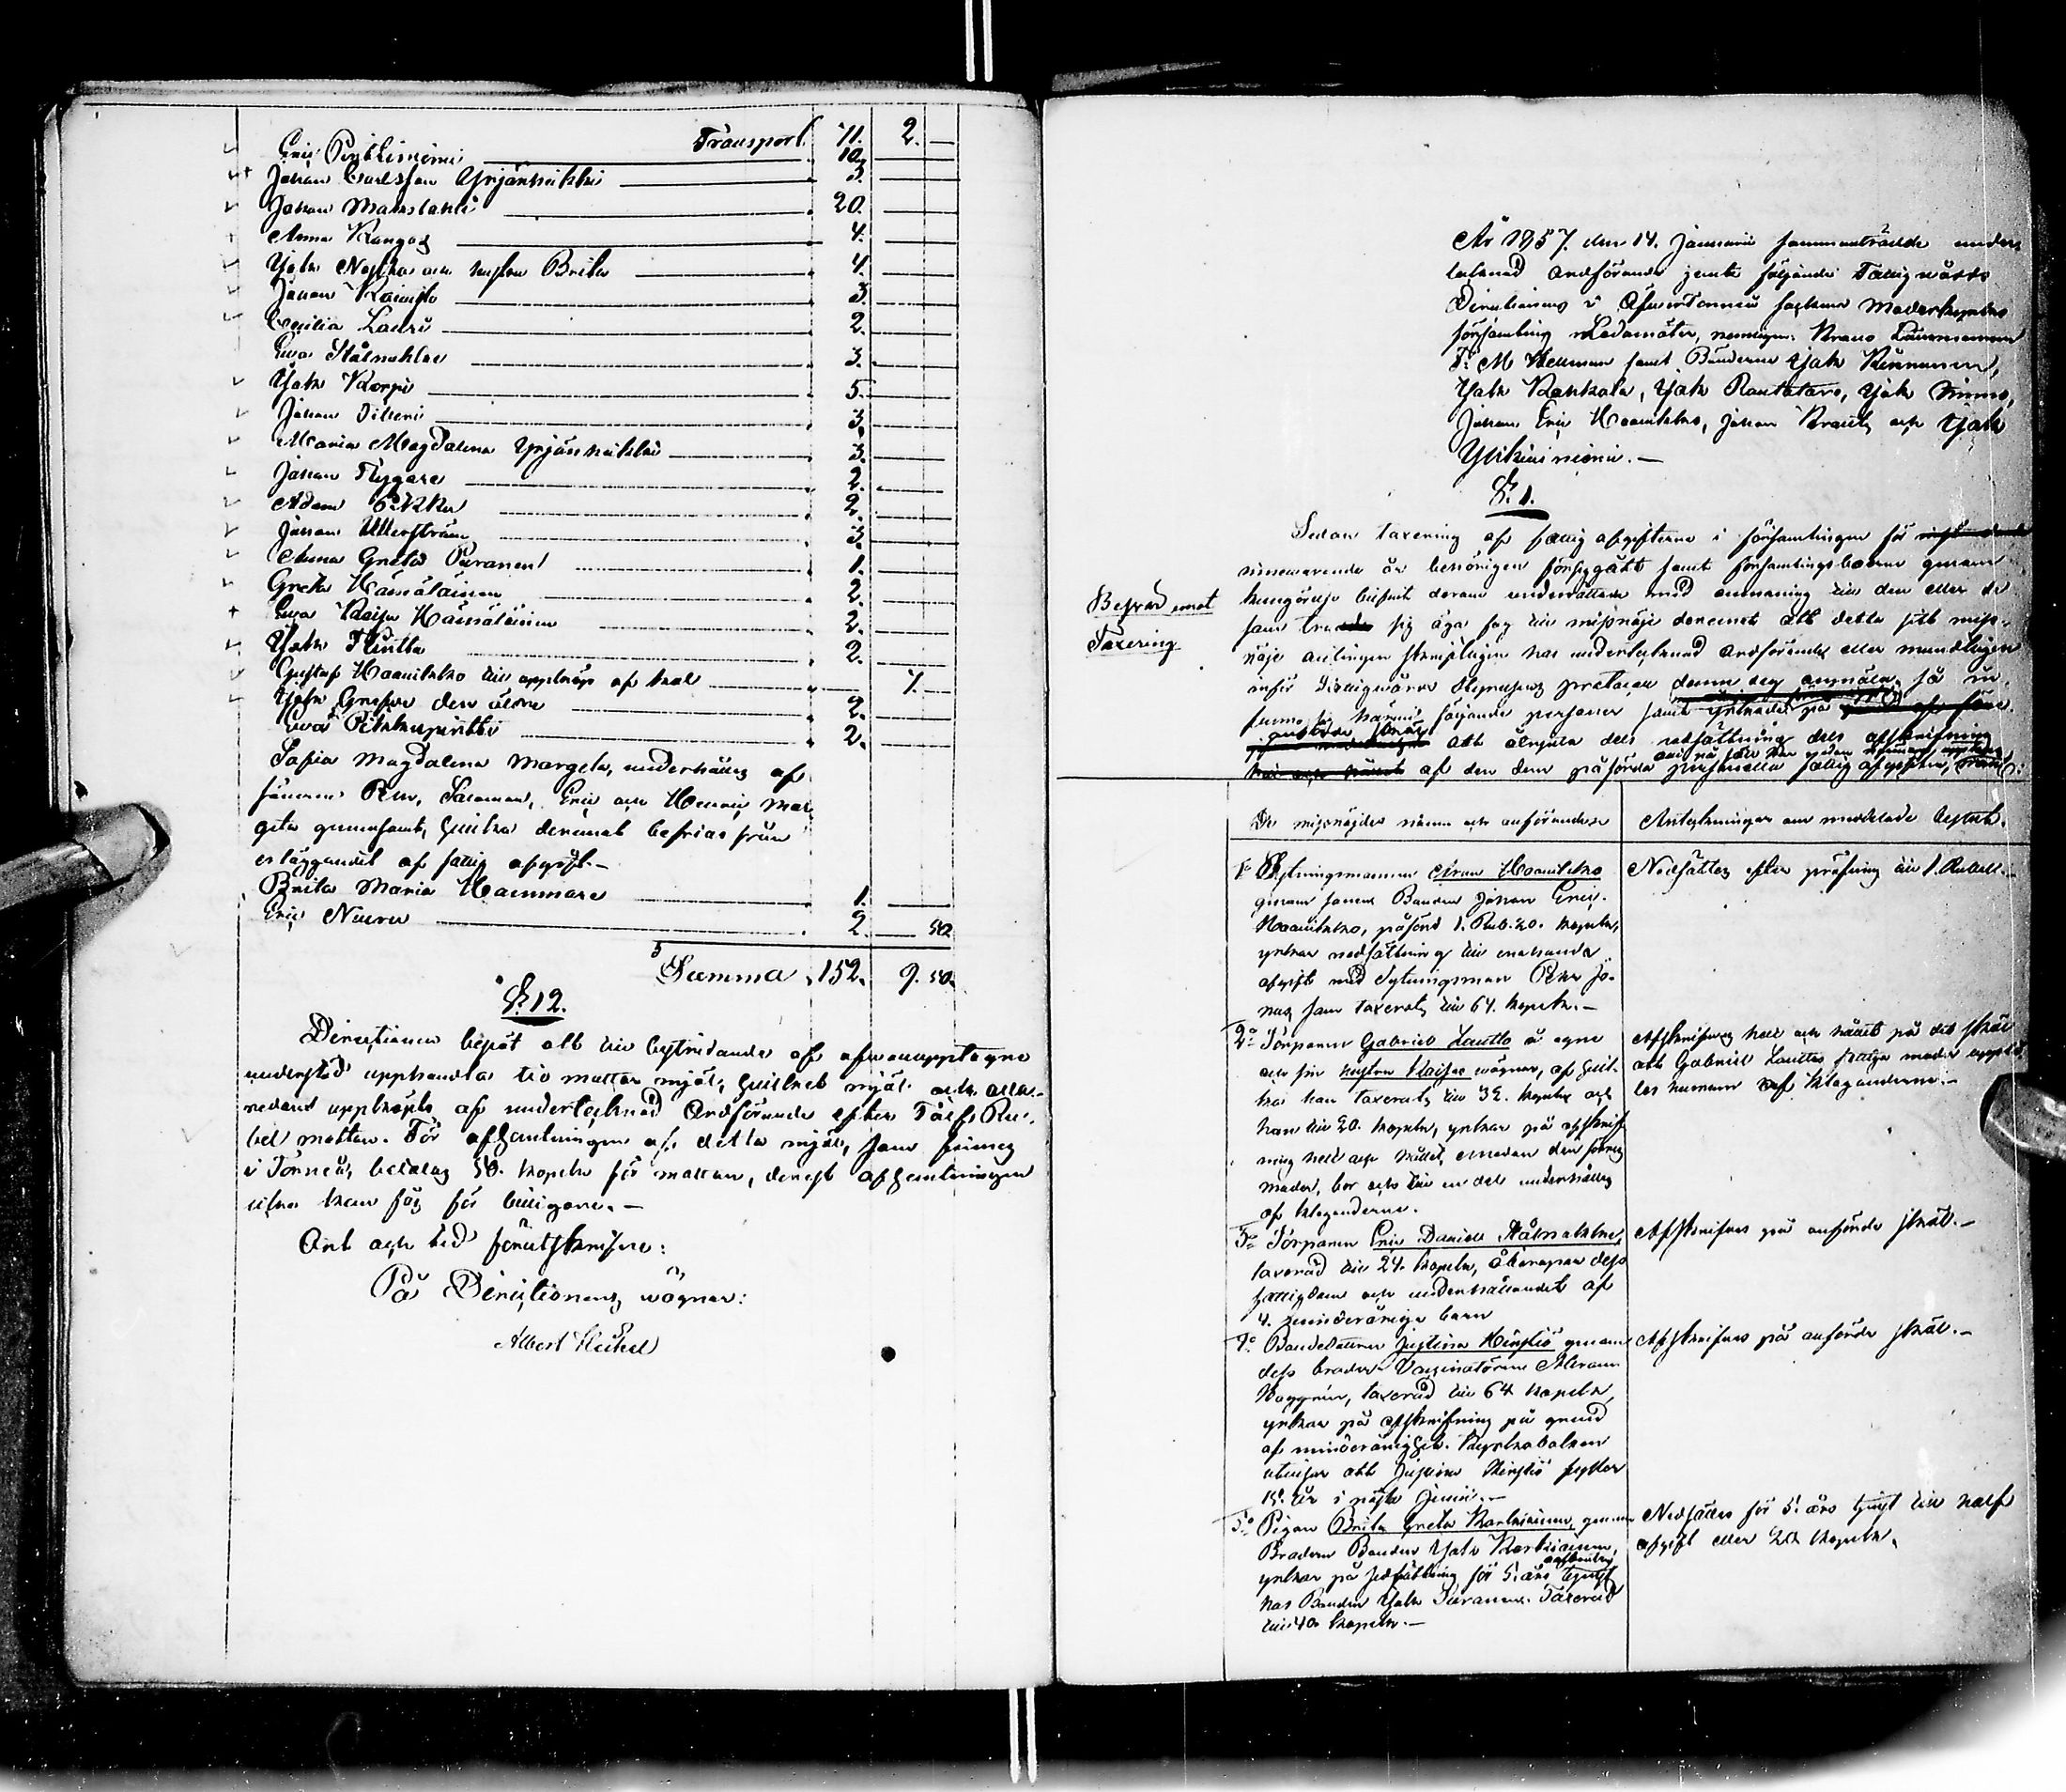 Transport. 71. 2. —
Eric Perttiniemi — 10.
Johan Carlsson Yrjänheikki — 3.
Johan Mamslahti — 20.
Anna Kangas — 4.
Isak och hustru Brita — 4.
Johan Kainisto — 3.
Cecilia Lauri — 2.
Ewa Stålnacke — 3.
Isak Korpi — 5.
Johan — 3.
Maria Magdalena Yrjänheikki — 3.
Johan Flygare — 2.
Adam — 2.
Johan Ullerström — 3.
Anna Greta Puranen — 1.
Greta Hämäläinen — 2.
Ewa Kaisa Hämäläinen — 2.
Isak — 2.
Gustaf Haanikko till uppköp af — 7. —
Isak den äldre — 2.
Ewa — 2.
Sofia Magdalena Margeta, underhålles af
sönerne Petter, Salomon, Eric och Henric Mar-
geta gemensamt, hvilka deremot befrias från
erläggandet af fattig afgift.—
Brita Maria Hammare — 1.
Eric — 2. — 50.
Summa 152. 9. 50.
§. 12.
Directionen beslöt att till bestridande af ofvanupptagne
understöd upphandla tio mattor mjöl, hvilket mjöl ock alla-
redan uppköpts af undertecknad Ordförande efter Ru-
bel mattan. För afhemtningen af detta mjöl, som finnes
i Torneå, betalas 50. kopek för mattan, derest afhemtningen
icke kan fås för billigare.—
Ort och tid förutskrifne:
På Directionens wägnar:
Albert Heikel
År 1857. den 14. Januarii sammanträdde under-
tecknad Ordförande jemte följande Fattigwårds
Directionens i Öfvertorneå socken Moderkyrko
församling Ledamöter, nemligen: Krono Länsmannen
F. M. Kellman samt Bönderne Isak Kinnunen,
Isak Kankala, Isak Rautataro, Isak Nimo,
Johan Eric Haanikko, Johan och Isak
Ylikiiniemi.—
§. 1.
Besvär emot
Taxering
Sedan taxering af fattig afgifterne i församlingen för
innewarande år behörigen försiggått samt församlingsboerne genom
kungörelse blifvit derom underrättade med anmaning till den eller de
som tro sig äga fog till missnöje deremot att detta sitt miss-
nöje antingen skriftligen hos undertecknad Ordförande eller mundtligen
inför Fattigwårds Styrelsens protocoll denna dag anmäla, så in-
funno sig härwid följande personer samt yrkade på
anförde skäl att åtnjuta dels nedsättning dels afskrifning
af den dem påförda personella fattig afgiften,
De missnöjdes namn och anförande
Antekningar om meddelade beslut.
1o Sytningsmannen Aron Haanikko
genom sonen Bonden Johan Eric
Haanikko, påförd 1. Rub. 20. kopek,
yrkar nedsättning till enahanda
afgift med Sytningsman Petter Jo-
nas som taxerats till 64. kopek.—
Nedsättes efter pröfning till 1. Rubel.—
2o Torparen Gabriel Lautto å egne
och sin hustru Kaisas wägnar, af hvil-
ka han taxerats till 32. kopek och
hon till 20. kopek, yrkar på afskrif-
ning helt och hållet, emedan den förres
moder, bor och till en del underhålles
af klaganderne.
Afskrifves helt och hållet på det skäl
att Gabriel Lauttos fattiga moder uppehål-
les hemma af klaganderne.—
3o Torparen Eric Daniel Stålnacke
taxerad till 24. kopek, åberopar dess
fattigdom och underhållandet af
4. minderåriga barn
Afskrifves på anförde skäl.—
4o Bondedottren Justina Hirstiö genom
dess broder Vaccinatören Abram
Heggnér, taxerad till 64 kopek,
yrkar på afskrifning på grund
af minderårighet. Kyrkoboken
utwisar att Justina Hirstiö fyller
15. år i nästa Junii.—
Afskrifves på anförde skäl.—
5o Pigan Brita Greta Karkiainen, genom
Brodern Bonden Isak Karkiainen,
yrkar på nedsättning för 5. års tjenst
hos Bonden Isak Puranen. Taxerad
till 40. kopek.—
Nedsättes för 5. års tjenst till half
afgift eller 20. kopek.